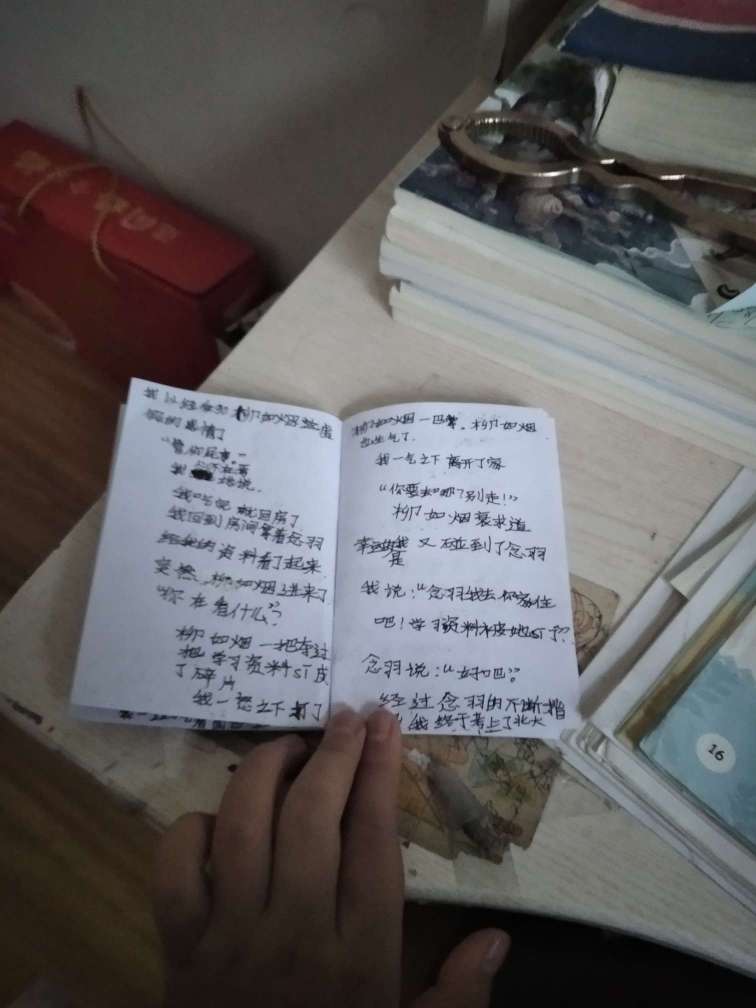 我已经受够柳如烟这虚
假的感情了
"管你屁事。"
我
地说.
我吃完就回房了
我回到房间拿着念羽
给我的资料看了起来
突然柳如烟进来了
"你在看什么?"
柳如烟一把夺过
把学习资料打成
了碎片
我一怒之下打了
柳如烟一巴掌,柳如烟
也生气了.
我一气之下离开了家
"你要去哪?别走!"
柳如烟哀求道
幸运的是
我又碰到了念羽
我说:"念羽我去你家住
吧!学习资料被她打了"
念羽说:"好吧"。
经过念羽的不断
我终于考上了北大
16